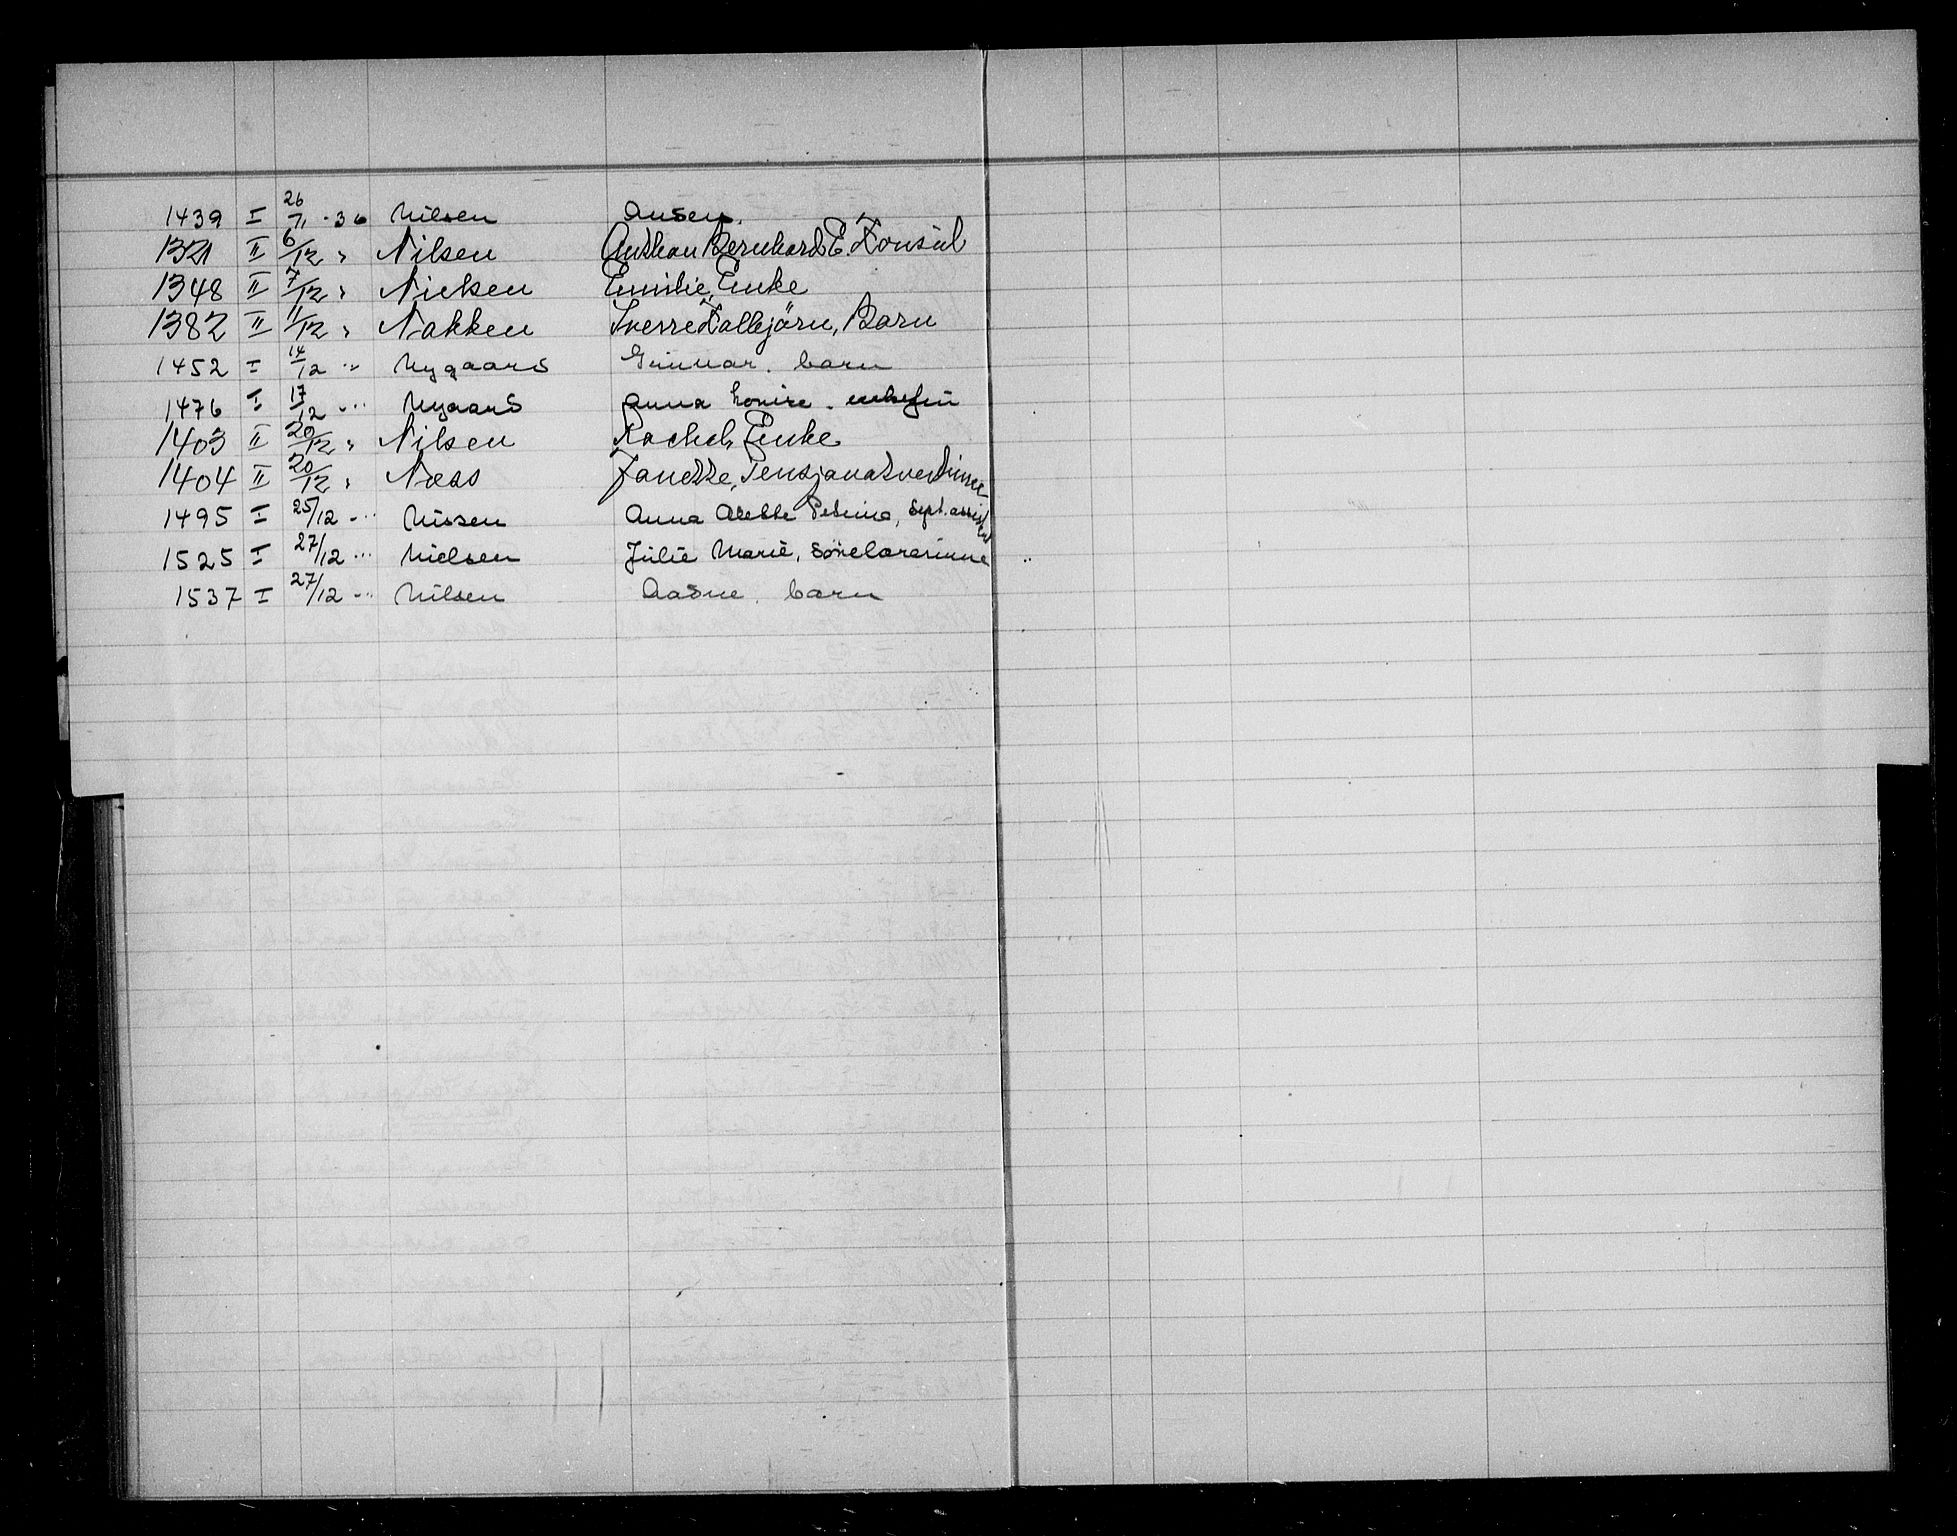 1439 I 26/11 - 36 Nilsen Ansey.
1321 II 6/12 " Nilsen Anthon Bernhard E. Konsul
1348 II 7/12 " Nielsen Emilie, Enke
1382 II 11/12 " Nakken Sverre Kolbjörn, Barn
1452 I 14/12 " Nygaard Gunnar. barn
1476 I 17/12 " Nygaard Anna Lovise.
1403 II 20/12 " Nilsen Rachel, Enke
1404 II 20/12 " Næss Janette, Pensjonatvertinne
1495 I 25/12 " Nissen Anna Petrine,
1525 I 27/12 " Nielsen Julie Marie,
1537 I 27/12 " Nilsen Aasne. barn